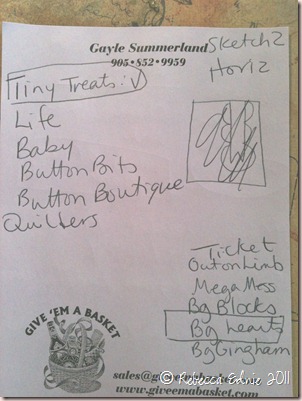 Gayle Summerland
905•852•9959
Sketch 2
Horiz
Tiny Treats:
Life
Baby
Button Bits
Button Boutique
Quilters
Ticket
Out on Limb
Mega Mess
Bg Blocks
Bg hearts
Bg Gingham
GIVE 'EM A BASKET
sales@giveemabasket.com
www.giveemabasket.com
© Rebecca Ednie 2011